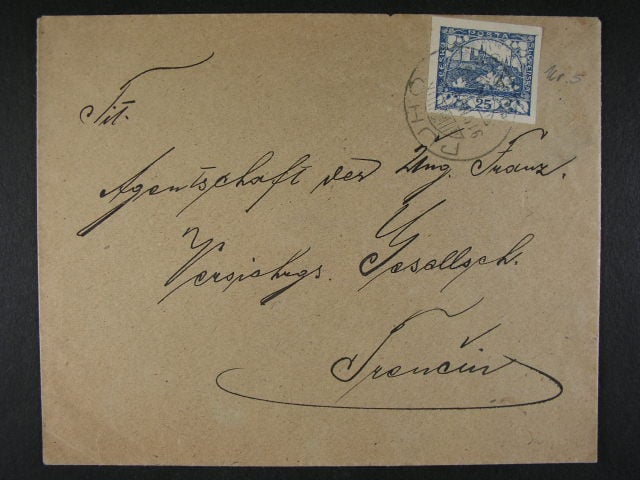 POSTA
ČESKO
SLOVENSKÁ
25
PÚHO
Nr. 5
Tit.
Agentschaft der Ung. Franz.
Versichrgs. Gesellsch.
Trenčin